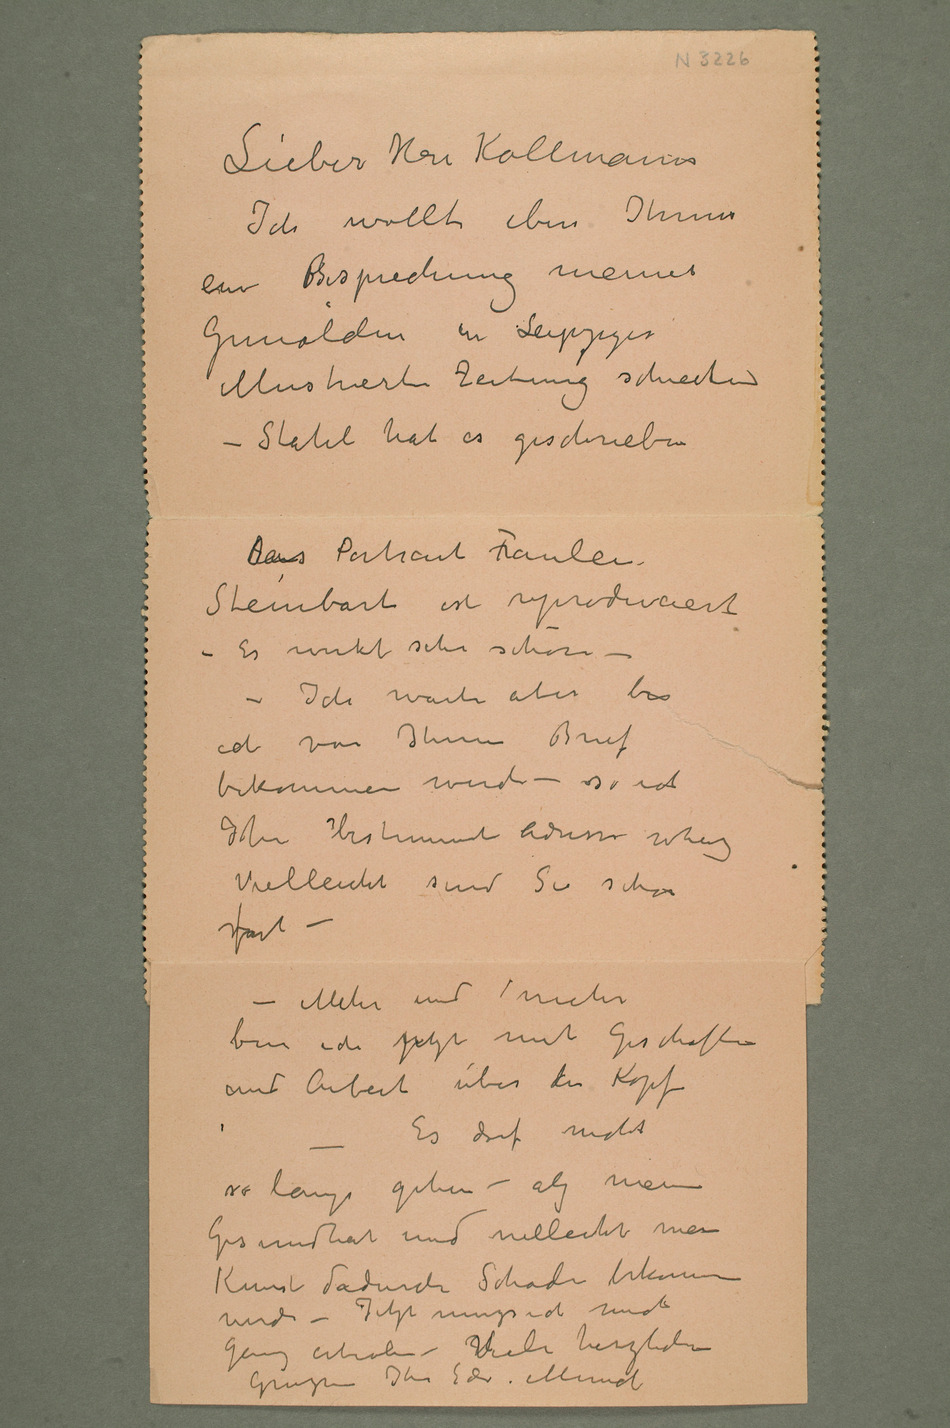 N 3226
Lieber Herr Kollmann
Ich wollte eben Ihnen
ein Besprechung meiner
Gemälden in Leipziger
illustrierte Zeitung schicken
– Stahl hat es geschrieben
Das Portrait Fraulein
Steinbart ist reproduciert
– Es wirkt sehr schön –
– Ich warte aber bis
ich von Ihnen Brief
bekommen werde – so ich
Ihre bestimmte Adresse
Vielleicht sind Sie schon
fort –
– Mehr und mehr
bin ich jetzt mit Geschäften
und Arbeit über den Kopf
– Es darf nicht
so lange gehen – als mein
Gesundheit und vielleicht mein
Kunst dadurch Schade bekommen
werde – Jetzt muss ich mich
ganz erholen – Viele herzlichen
Grüssen Ihr Edv. Munch